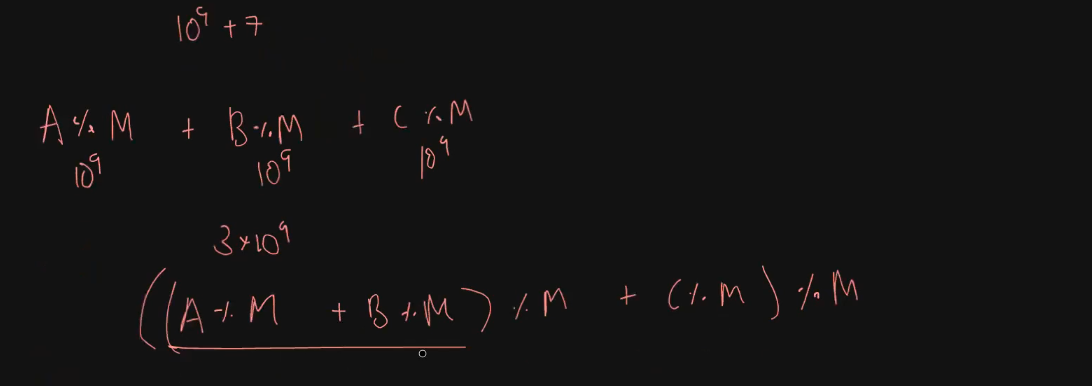 10⁹ + 7
A % M + B % M + C % M
10⁹ 10⁹ 10⁹
3 × 10⁹
((A % M + B % M) % M + C % M) % M